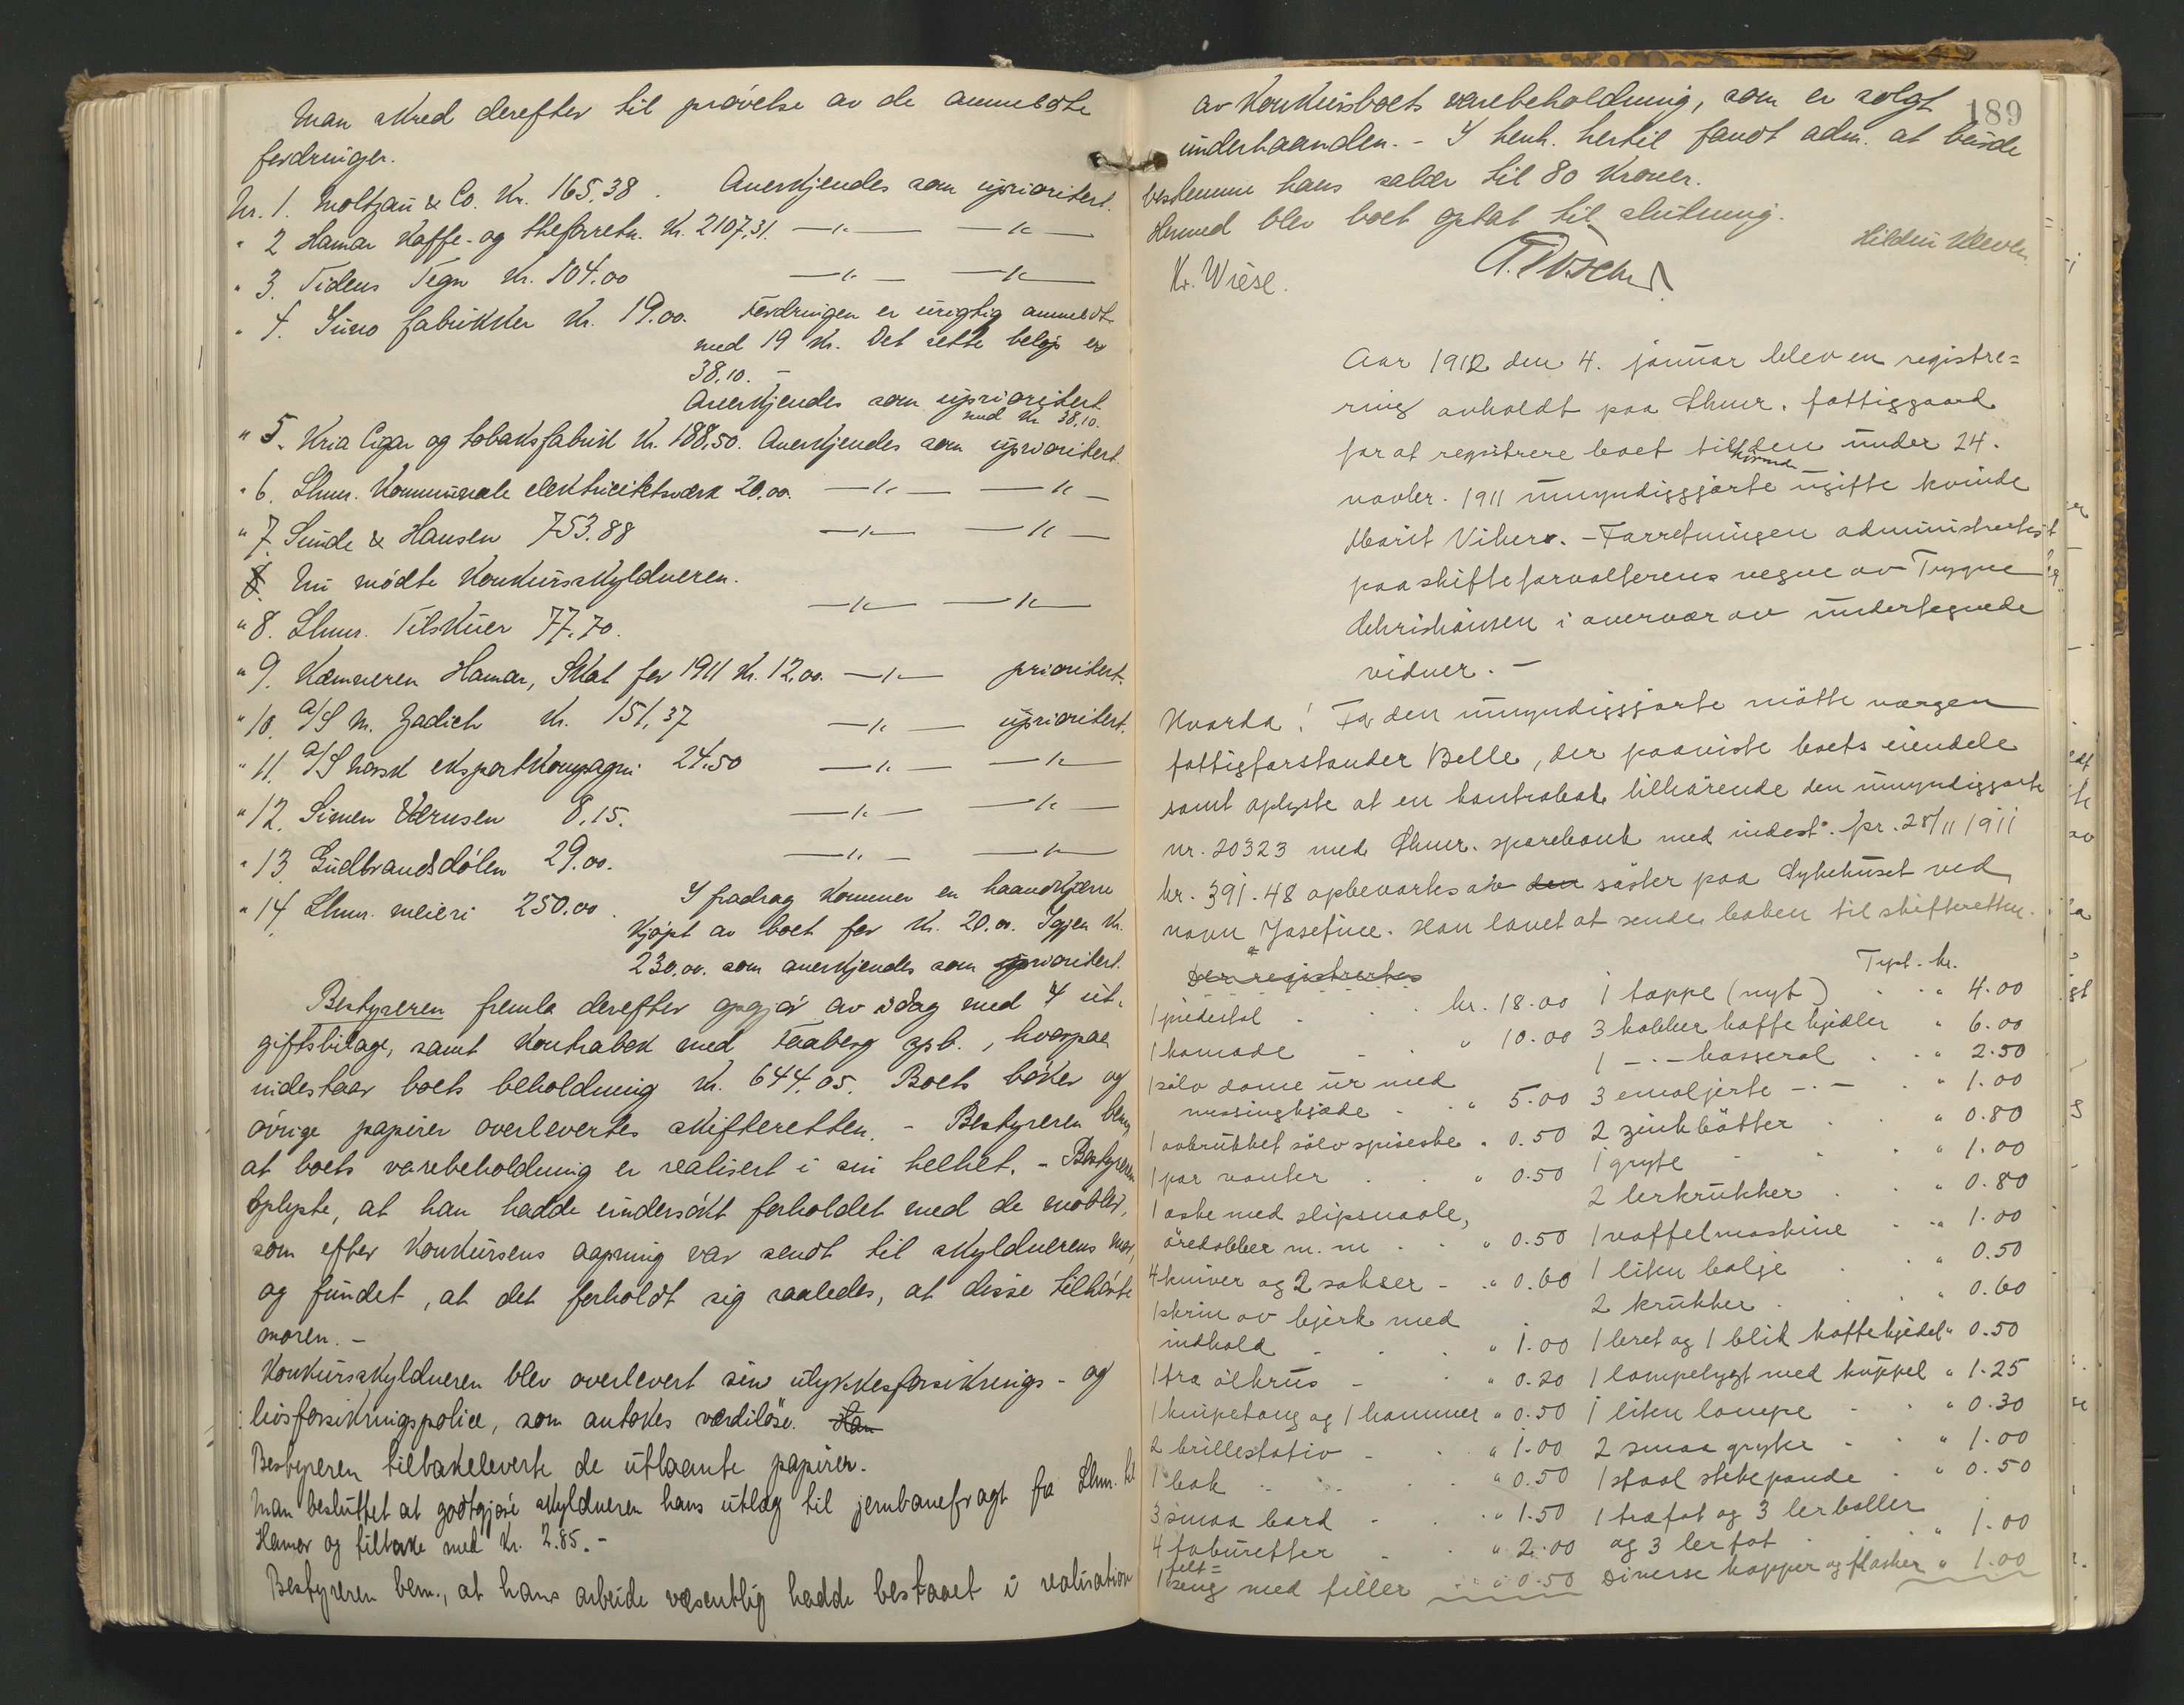 Man skred derefter til prøvelse av de anmeldte
fordringer.
Nr. 1. Moltzau & Co. Kr. 165,38. Anerkjendes som uprioritert.
" 2 Hamar Kaffe- og theforretn. Kr. 2107,31. —"— —"—
" 3. Tidens Tegn Kr. 104.00 —"— —"—
" 4. Suno fabrikker Kr. 19.00. Fordringen er urigtig anmeldt
med 19 Kr. Det rette beløp er
38,10. -
Anerkjendes som uprioritert
med Kr 38,10.
" 5. Kria Cigar og tobaksfabrik Kr. 188,50. Anerkjendes som uprioritert.
" 6. Lhmr. Kommunale elektricitetsværk 20.00. —"— —"—
" 7. Sunde & Hansen 753.88 —"— —"—
8. Nu mødte Konkursskyldneren.
" 8. Lhmr. Tilskuer 77.70. —"— —"—
" 9. Kæmneren Hamar, Skat for 1911 Kr. 12.00. —"— prioritert.
" 10. A/S M. Zadich Kr. 151,37 —"— uprioritert.
" 11. A/S norsk eksportkompagni 24.50 —"— —"—
" 12. Simen 8.15. —"— —"—
" 13. Gudbrandsdølen 29.00. —"— —"—
" 14 Lhmr. meieri 250.00. I fradrag kommer en haandkjærre
kjøpt av boet for Kr. 20.00. Igjen Kr.
230.00. som anerkjendes som uprioritert.
Bestyreren fremla derefter opgjør av idag med 4 ut-
giftsbilage, samt Kontrabok med Faaberg spb., hvorpaa
indestaar boets beholdning Kr. 644.05. Boets bøker og
øvrige papirer overlevertes skifteretten. - Bestyreren bem.
at boets varebeholdning er realisert i sin helhet. - Bestyreren
oplyste, at han hadde undersøkt forholdet med de møbler,
som efter Konkursens aapning var sendt til skyldnerens mor,
og fundet, at det forholdt sig saaledes, at disse tilhørte
moren. -
Konkursskyldneren blev overlevert sin ulykkesforsikrings- og
livsforsikringspolice, som antokes værdiløse. Han
Bestyreren tilbakeleverte de utlaante papirer.
Man besluttet at godtgjøre skyldneren hans utlæg til jernbanefragt fra Lhm. til
Hamar og tilbake med Kr. 2.85. -
Bestyreren bem., at hans arbeide væsentlig hadde bestaaet i realisation
189
av Konkursboets varebeholdning, som er solgt
underhaanden. - I henh. hertil fandt adm. at burde
bestemme hans salær til 80 Kroner.
Hermed blev boet optat til slutning.
Kr. Wiese.
Aar 1912 den 4. januar blev en registre=
ring avholdt paa Lhmr. fattiggaard
for at registrere boet tilhørende den under 24.
novbr. 1911 umyndiggjorte ugifte kvinde
Marit Viker. - Forretningen administrertes
paa skifteforvalterens vegne av Trygve
Christiansen i overvær av undertegnede
vidner. -
Hvorda! For den umyndiggjorte møtte vergen
fattigforstander Belle, der paaviste boets eiendele
samt oplyste at en kontrabok tilhørende den umyndiggjorte
nr. 20323 med Lhmr. sparebank med indest. pr. 28/11 1911
kr. 391.48 opbevartes av den søster paa Sykehuset ved
navn Josefine. Han lovet at sende boken til skifteretten.
Der registrertes
1 piedestal . kr. 18.00
1 komode " 10.00
1 sølv dame ur med
messingkjæde " 5.00
1 avbrukket sølv spiseske " 0.50
1 par vanter " 0.50
1 æske med slipsnaale,
øredobber m. m " 0.50
4 kniver og 2 sakser " 0.60
1 skrin av bjerk med
indhold " 1.00
1 træ ølkrus " 0.20
1 knipetang og 1 hammer " 0.50
2 brillestativ " 1.00
1 bok " 0.50
3 smaa bord " 1.50
4 taburetter " 2.00
1 felt=seng med filler " 0.50
Trpt. kr.
1 tæppe (nyt) " 4.00
3 kobber kaffe kjedler " 6.00
1 -"- kasserol " 2.50
3 emaljerte -"- " 1.00
2 zink bøtter " 0.80
1 gryte " 1.00
2 lerkrukker " 0.80
1 vaffelmaskine " 1.00
1 liten balje " 0.50
2 krukker " 0.60
1 leret og 1 blik kaffekjedel " 0.50
1 lampelygt med kuppel " 1.25
1 liten lampe " 0.30
2 smaa gryter " 1.00
1 staal stekepande " 0.50
1 træfat og 3 lerboller
og 3 lerfat " 1.00
Diverse kopper og flasker " 1.00